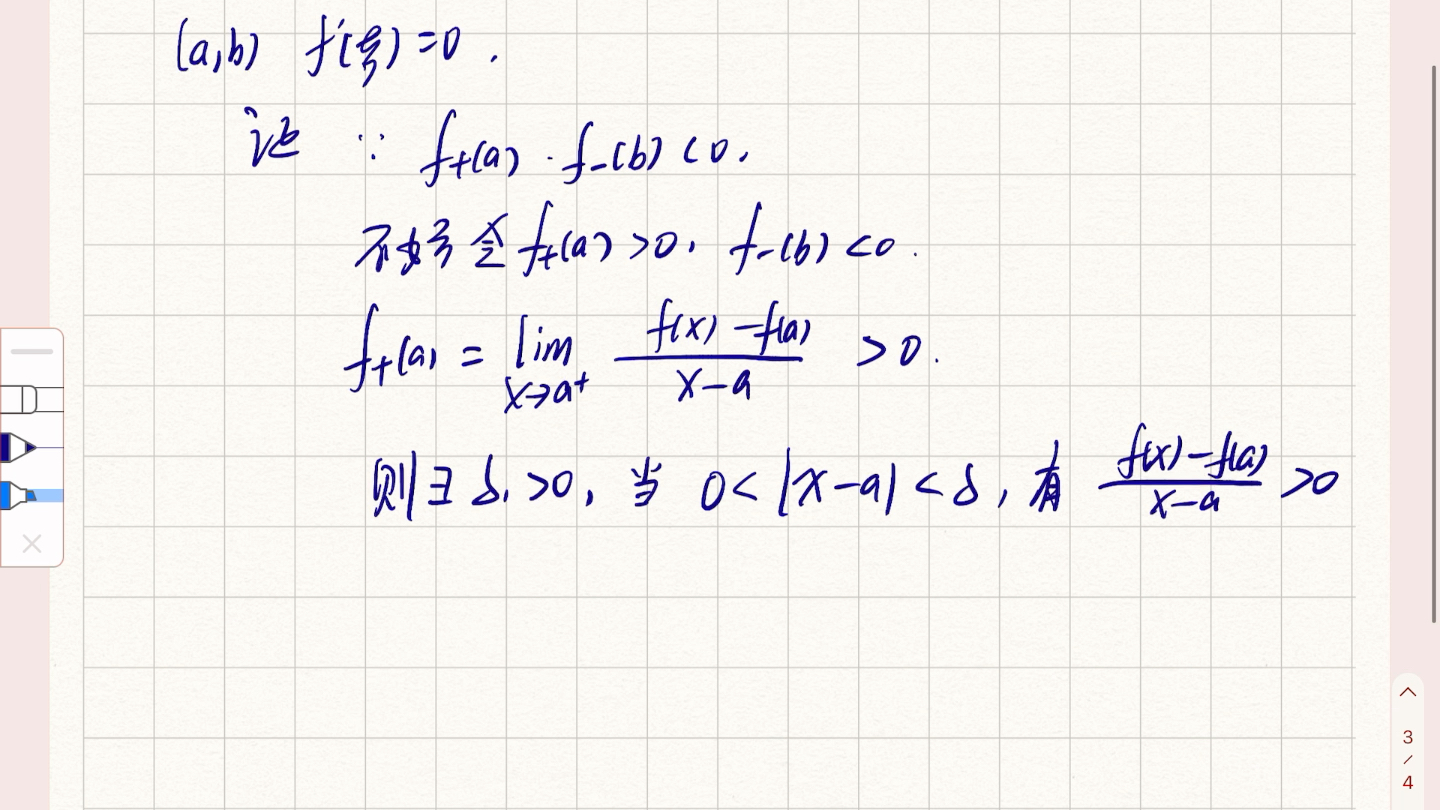 (a,b) f'(ξ)=0.
证 ∵ f₊(a)·f₋(b)<0.
不妨令 f₊(a)>0, f₋(b)<0.
f₊(a) = lim_{x→a⁺} \frac{f(x)-f(a)}{x-a} >0.
则∃δ₁>0, 当 0<|x-a|<δ, 有 \frac{f(x)-f(a)}{x-a} >0
3
/
4